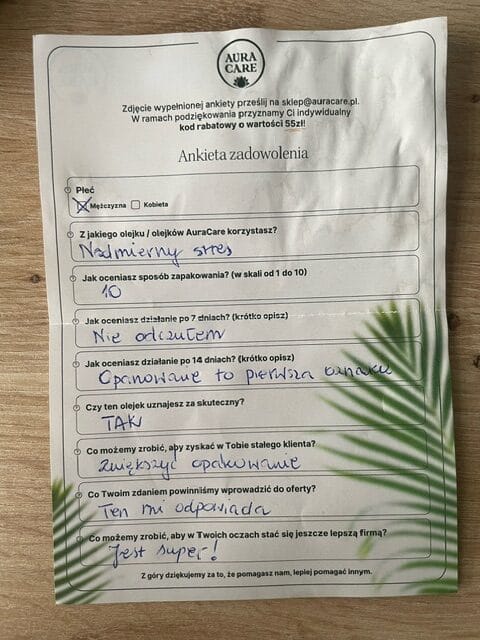 AURA
CARE
Zdjęcie wypełnionej ankiety prześlij na sklep@auracare.pl.
W ramach podziękowania przyznamy Ci indywidualny
kod rabatowy o wartości 55zł!
Ankieta zadowolenia
Płeć
Mężczyzna Kobieta
Z jakiego olejku / olejków AuraCare korzystasz?
Nadmierny stres
Jak oceniasz sposób zapakowania? (w skali od 1 do 10)
10
Jak oceniasz działanie po 7 dniach? (krótko opisz)
Nie odczułem
Jak oceniasz działanie po 14 dniach? (krótko opisz)
Opanowanie to pierwsza oznaka
Czy ten olejek uznajesz za skuteczny?
TAK
Co możemy zrobić, aby zyskać w Tobie stałego klienta?
Zwiększyć opakowanie
Co Twoim zdaniem powinniśmy wprowadzić do oferty?
Ten mi odpowiada
Co możemy zrobić, aby w Twoich oczach stać się jeszcze lepszą firmą?
Jest super!
Z góry dziękujemy za to, że pomagasz nam, lepiej pomagać innym.